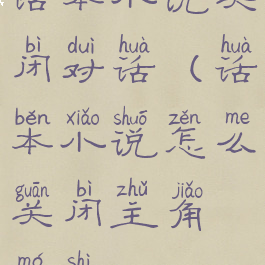 话本小说关
bì duì huà huà
闭对话（话
běn xiǎo shuō zěn me
本小说怎么
guān bì zhǔ jiǎo
关闭主角
mó shì